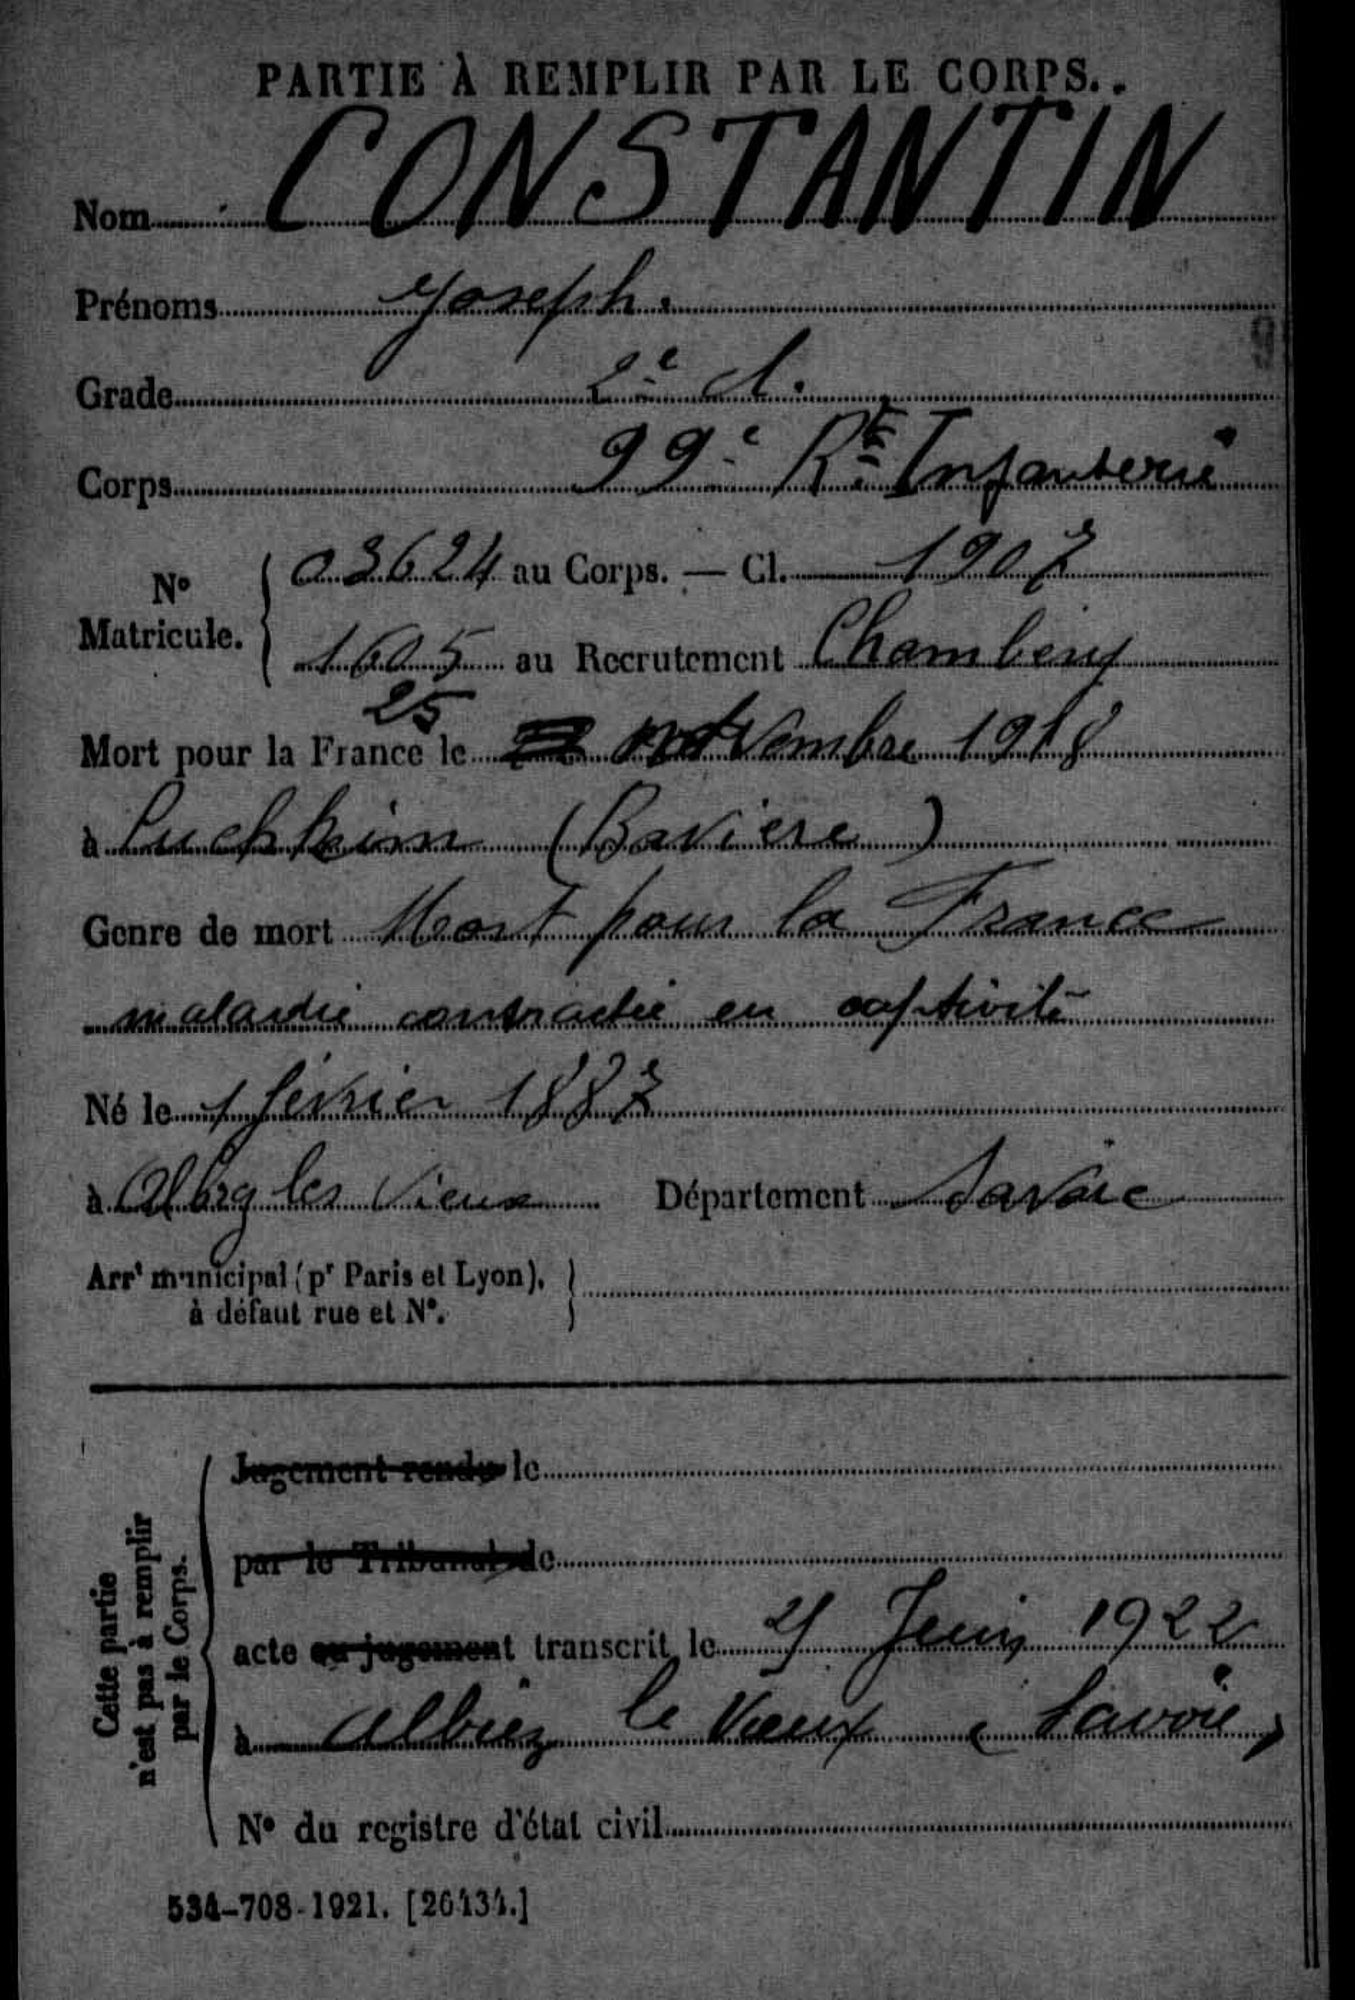 PARTIE À REMPLIR PAR LE CORPS.
Nom CONSTANTIN
Prénoms Joseph.
Grade 2e cl.
Corps 99e Rt Infanterie
No Matricule. 03624 au Corps. — Cl. 1907
1605 au Recrutement Chambery
25
Mort pour la France le novembre 1918
à Puchheim (Baviere)
Genre de mort Mort pour la France
maladie contractée en captivité
Né le 1 février 1887
à Albzg les Vieux Département Savoie
Arrt municipal (pr Paris et Lyon),
à défaut rue et No.
Cette partie
n'est pas à remplir
par le Corps.
Jugement rendu le
par le Tribunal de
acte ou jugement transcrit le 21 Juin 1922
à Albiez le Vieux (Savoie)
No du registre d'état civil
534-708-1921. [26434.]